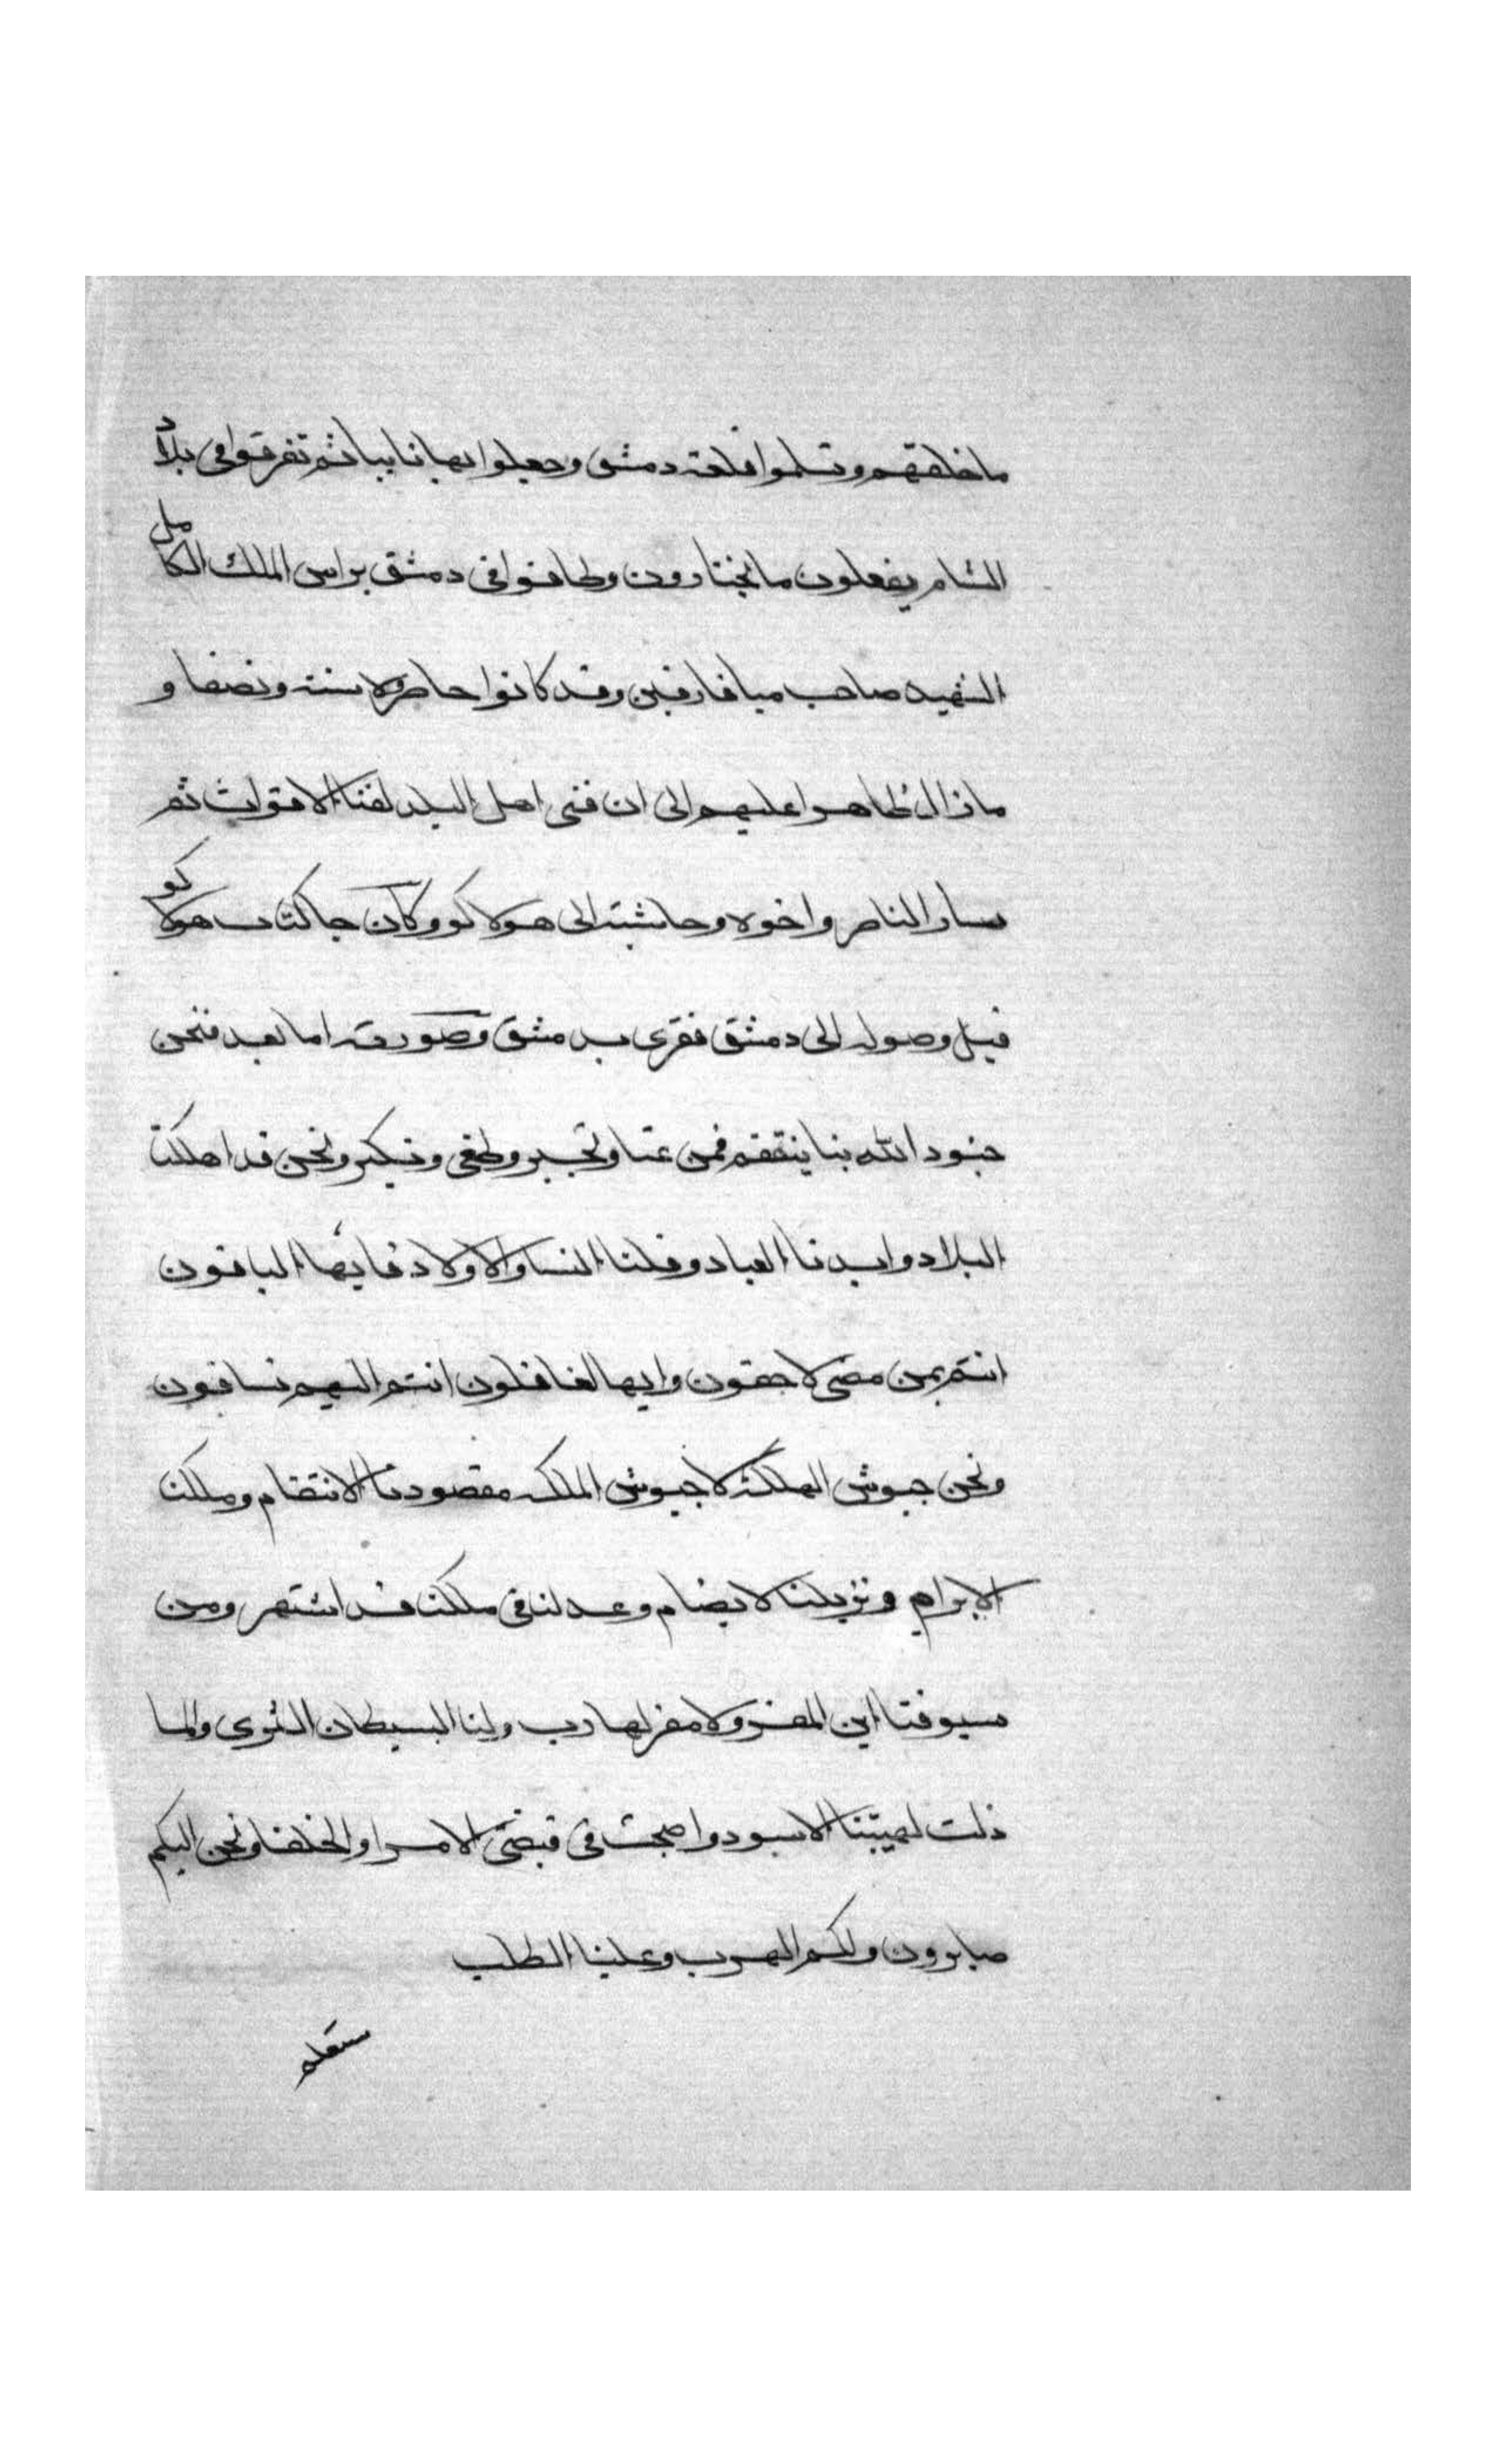 ما خلقهم وتسلموا قلعة دمشق وجعلوا بها نايبا ثم تفرقوا في بلاد
الشام يفعلون ما يختارون وطافوا في دمشق براس الملك الكامل
الشهيد صاحب ميافارقين وقد كانوا حاصروه سنة ونصفا و
ما زال ظاهرا عليهم الى ان فنى اهل البلد لفنا الاقوات ثم
سار الناصر واخوه وحاشيته الى هولاكو وكان جا كتاب هولاكو
قبل وصوله الى دمشق فقرى بدمشق وصورته اما بعد فنحن
جنود الله بنا ينتقم ممن عتا وتجبر وطغى وتكبر ونحن قد اهلكنا
البلاد وابدنا العباد وقتلنا النسا والاولاد فايها الباقون
انتم بمن مضى لاحقون وايها الغافلون انتم اليهم تساقون
ونحن جيوش الهلكة لا جيوش الملكه مقصودنا الانتقام وملكنا
لا يرام ونزيلنا لا يضام وعدلنا في ملكنا قد اشتهر ومن
سيوفنا اين المفر ولا مفر لهارب ولنا البسيطان الثرى والما
ذلت لهيبتنا الاسود واصبحت في قبضتي الامرا والخلفا ونحن اليكم
صايرون ولكم الهرب وعلينا الطلب
ستعلم